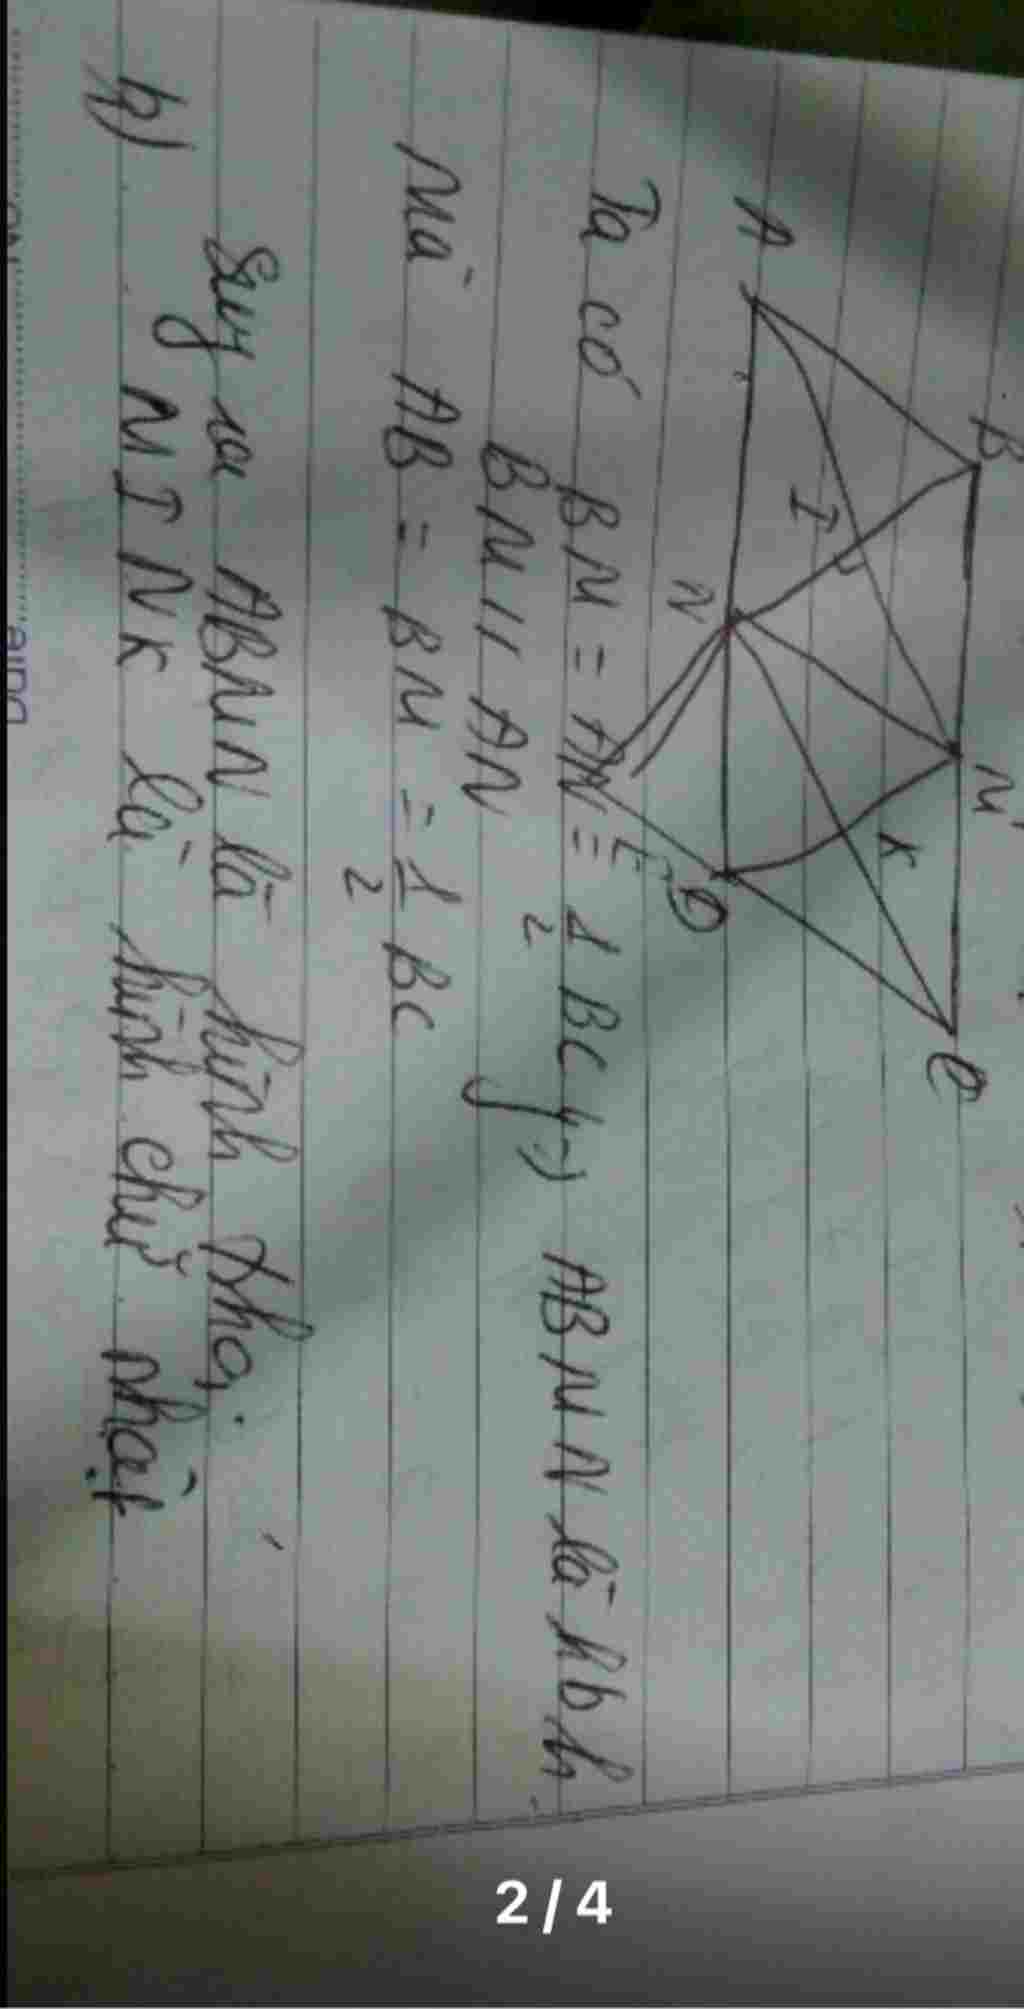 B
M
C
A
I
K
N
D
E
Ta có BM = AN = 1/2 BC } → ABMN là hbh
BM // AN
Mà AB = BM = 1/2 BC
Suy ra ABMN là hình thoi
b) MINK là hình chữ nhật
2/4